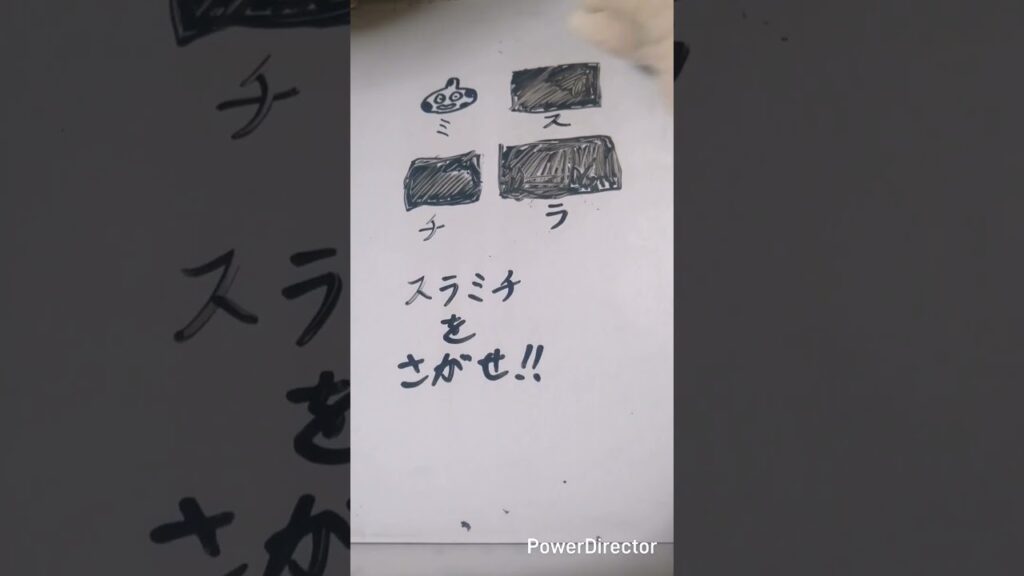 ミ ス
チ ラ
スラミチ
を
さがせ!!
PowerDirector